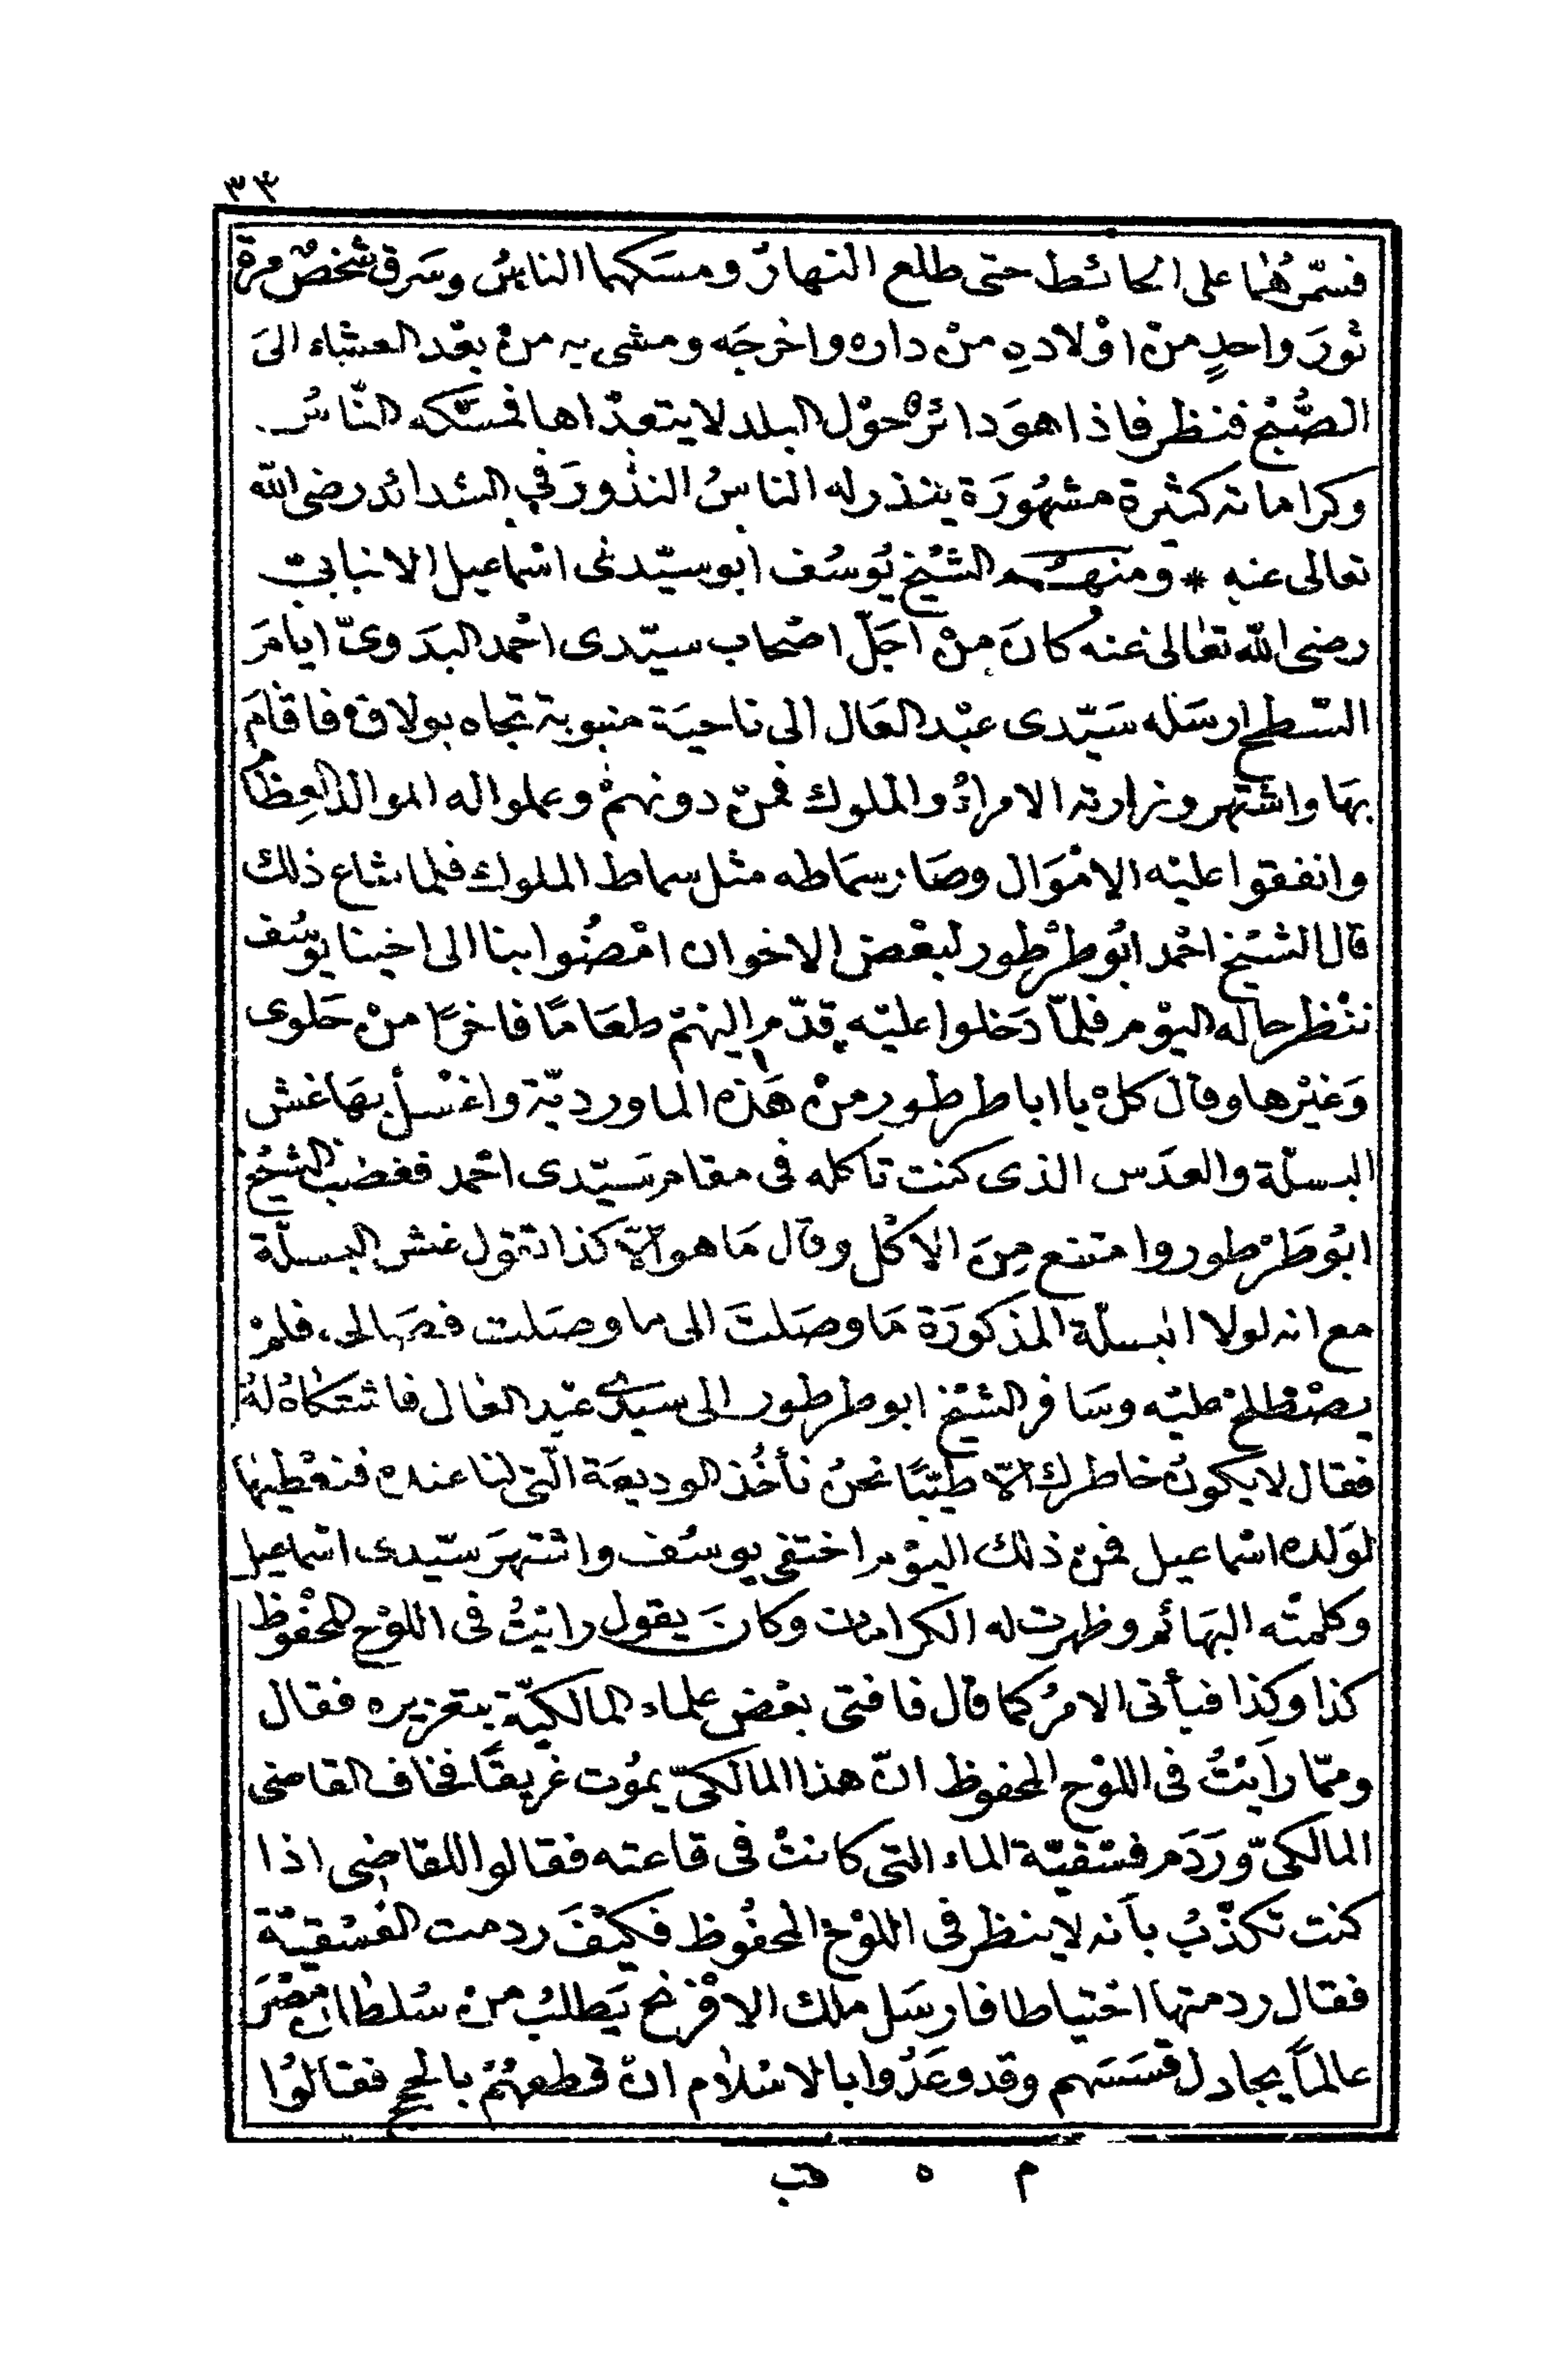 ٣٣
فسمّرهُما على الحائط حتى طلع النهارُ ومسكهما الناسُ وسَرق شخصٌ مرة
ثورَ واحدٍ منْ اوْلادهِ منْ داره واخرجَه ومشى به منْ بعْد العشاء الىَ
الصُّبْح فنظر فاذا هوَ دائرٌ حوْل البلد لا يتعدّاها فمسَكه النّاسُ
وكراماته كثيرة مشهُورَة ينذر له الناسُ النذُورَ في الشدائد رضى الله
تعالى عنه * ومنهم الشيْخ يُوسُف ابو سيّدى اسْماعيل الانبابى
رضى الله تعَالى عنه كانَ منْ اجَلّ اصْحاب سيّدى احْمد البدَوىّ ايامَ
السّطح ارسَله سَيّدى عبْد العَال الى ناحيَة منبوبة تجاه بولاق فاقامَ
بهَا واشتَهر وزارته الامراءُ والملوك فمنْ دونهمْ وعملوا له الموالد العِظام
وانفقوا عليْه الامْوَال وصَار سمَاطه مثل سماط الملوك فلما شاع ذلك
قال الشيْخ احْمد ابُو طرْطور لبعْض الاخوان امْضُوا بنا الى اخينا يوسُف
ننْظر حاله اليوْم فلمّا دَخلوا عليْه قدّم اليْهمْ طعَامًا فاخرًا منْ حَلوى
وَغيْرها وقال كلْ يا ابا طرطور منْ هَذه الماورديّة واغسْلْ بهَا غش
البسلّة والعدَس الذى كنت تاكله فى مقام سَيّدى احْمد فغضب الشيْخ
ابُو طَرْطور وامتنع مِنَ الاكْل وقال مَا هو الّا كذا تقول غش البسلّة
مع انه لولا البسلّة المذكورَة مَا وصَلتَ الى ما وصَلت فصَالحه فلمْ
يصْطلحْ عليْه وسَافر الشيْخ ابو طرطور الى سيّدى عبْد العال فاشتكاهُ لهُ
فقال لا يكونُ خاطرك الّا طيّبًا نحنُ نأخُذ الوديعَة الّتى لنا عنده فنعْطيها
لوَلده اسْماعيل فمنْ ذلك اليوْم اختفى يوسُف واشتهرَ سيّدى اسْماعيل
وكلمتْه البهَائم وظهرت له الكرامات وكانَ يقول رايْتُ فى اللوْح المحْفوظ
كذا وكذا فيأتى الامرُ كما قال فافتى بعْض علماء المالكيّة بتعزيره فقال
وممّا رَايْتُ فى اللوْح المحفوظ انّ هذا المالكىّ يموُت غريقًا فخاف القاضى
المالكىّ وَرَدَم فسْقيّة الماء التى كانتْ فى قاعته فقالوا للقاضى اذا
كنت تكذّبُ بأنه لا ينظر فى اللوْح المحفُوظ فكيْفَ ردمت الفسْقيّة
فقال ردمتها احْتياطا فارسَل ملك الافْرنج يَطلبُ منْ سُلطان مصْرَ
عالمًا يجادل قسسَهم وقد وعَدُوا بالاسْلام انْ قطعهُمْ بالحجج فقالوُا
م ٥ قب